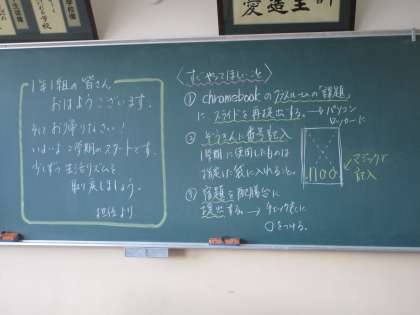 愛
1年1組の皆さん
おはようございます。
そしてお帰りなさい!
いよいよ2学期のスタートです。
少しずつ生活リズムを
取り戻しましょう。
担任より
〈まずやってほしいこと〉
① chromebookのクラスルームの「課題」
に スライドを再提出する。→パソコン
ロッカーに
② ぞうきんに番号記入
1学期に使用したものは
指定の袋に入れること。
1100
マジックで
記入
③ 宿題を配膳台に
提出する。→ チェック表に
○をつける。